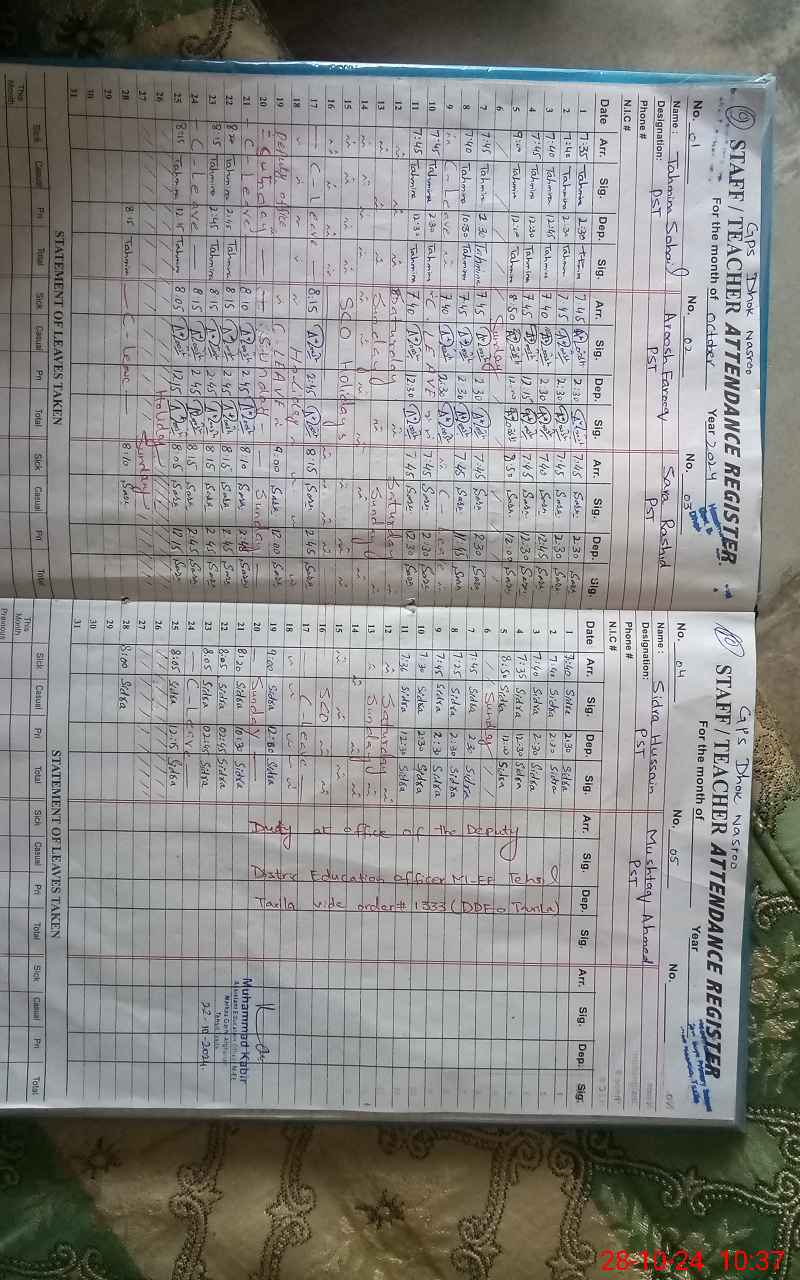 GPS Dhok Nasroo
STAFF / TEACHER ATTENDANCE REGISTER
For the month of October Year 2024
No. 01 No. 02 No. 03
Name : Tahmina Sohail Aroosh Farooq Sara Rashid
Designation: PST PST PST
Phone #
N.I.C #
Date Arr. Sig. Dep. Sig. Arr. Sig. Dep. Sig. Arr. Sig. Dep. Sig.
1 7:35 Tahmina 2:30 7:45 2:30 7:45 Sara 2:30 Sara
2 7:40 Tahmina 2:30 Tahmina 7:45 2:30 7:45 Sara 2:30 Sara
3 7:40 Tahmina 12:45 Tahmina 7:40 2:30 7:40 Sara 12:45 Sara
4 7:45 Tahmina 12:30 Tahmina 7:45 12:15 7:45 Sara 12:30 Sara
5 Tahmina Tahmina 8:50 12:00 8:50 Sara 12:00 Sara
6 Sunday
7 7:45 Tahmina 2:30 Tahmina 7:45 2:30 7:45 Sara 2:30 Sara
8 7:40 Tahmina 10:30 Tahmina 7:45 2:30 7:45 Sara 11:45 Sara
9 C-Leave 7:40 2:30 C-Leave
10 7:45 Tahmina 2:30 Tahmina C LEAVE 7:45 Sara 2:30 Sara
11 7:45 Tahmina 12:30 Tahmina 7:40 12:30 7:45 Sara 12:30 Sara
12 Saturday Saturday
13 Sunday Sunday
14
15 SCO Holidays
16
17 C-Leave 8:15 2:45 8:15 Sara 2:45 Sara
18 Holiday
19 Deputy office C LEAVE 9:00 Sara 12:00 Sara
20 Sunday Sunday Sunday
21 C-Leave 8:10 2:45 8:10 Sara 2:45 Sara
22 8:20 Tahmina 2:45 Tahmina 8:15 2:45 8:15 Sara 2:45 Sara
23 8:15 Tahmina 2:45 Tahmina 8:15 2:45 8:15 Sara 2:45 Sara
24 C-Leave 8:15 2:45 8:15 Sara 2:45 Sara
25 8:15 Tahmina 12:15 Tahmina 8:05 12:15 8:05 Sara 12:15 Sara
26 Holiday
27 Sunday
28 8:15 Tahmina C-Leave 8:10 Sara
29
30
31
STATEMENT OF LEAVES TAKEN
Sick Casual Pri Total Sick Casual Pri Total Sick Casual Pri Total
This Month
GPS Dhok Nasroo
STAFF / TEACHER ATTENDANCE REGISTER
For the month of Year
No. 04 No. 05 No.
Name : Sidra Hussain Mushtaq Ahmed
Designation: PST PST
Phone #
N.I.C #
Date Arr. Sig. Dep. Sig. Arr. Sig. Dep. Sig. Arr. Sig. Dep. Sig.
1 7:40 Sidra 2:30 Sidra
2 7:40 Sidra 2:30 Sidra
3 7:40 Sidra 2:30 Sidra
4 7:35 Sidra 12:30 Sidra
5 8:50 Sidra 12:00 Sidra
6 Sunday
7 7:45 Sidra 2:30 Sidra
8 7:25 Sidra 2:30 Sidra
9 7:45 Sidra 2:30 Sidra
10 7:30 Sidra 2:30 Sidra
11 7:36 Sidra 12:30 Sidra
12 Saturday
13 Sunday
14
15
16 SCO
17 C-Leave
18
19 9:00 Sidra 12:30 Sidra
20 Sunday
21 8:20 Sidra 10:30 Sidra
22 8:05 Sidra 02:45 Sidra
23 8:05 Sidra 02:45 Sidra
24 C-Leave
25 8:05 Sidra 12:15 Sidra
26
27
28 8:00 Sidra
29
30
31
Duty at office of the Deputy
Distric Education officer M-EE Tehsil
Taxila vide order# 1333 (DDEO Taxila)
Muhammad Kabir
Assistant Education Officer
22-10-2024
STATEMENT OF LEAVES TAKEN
Sick Casual Pri Total Sick Casual Pri Total Sick Casual Pri Total
This Month
Previous
28-10-24 10:37